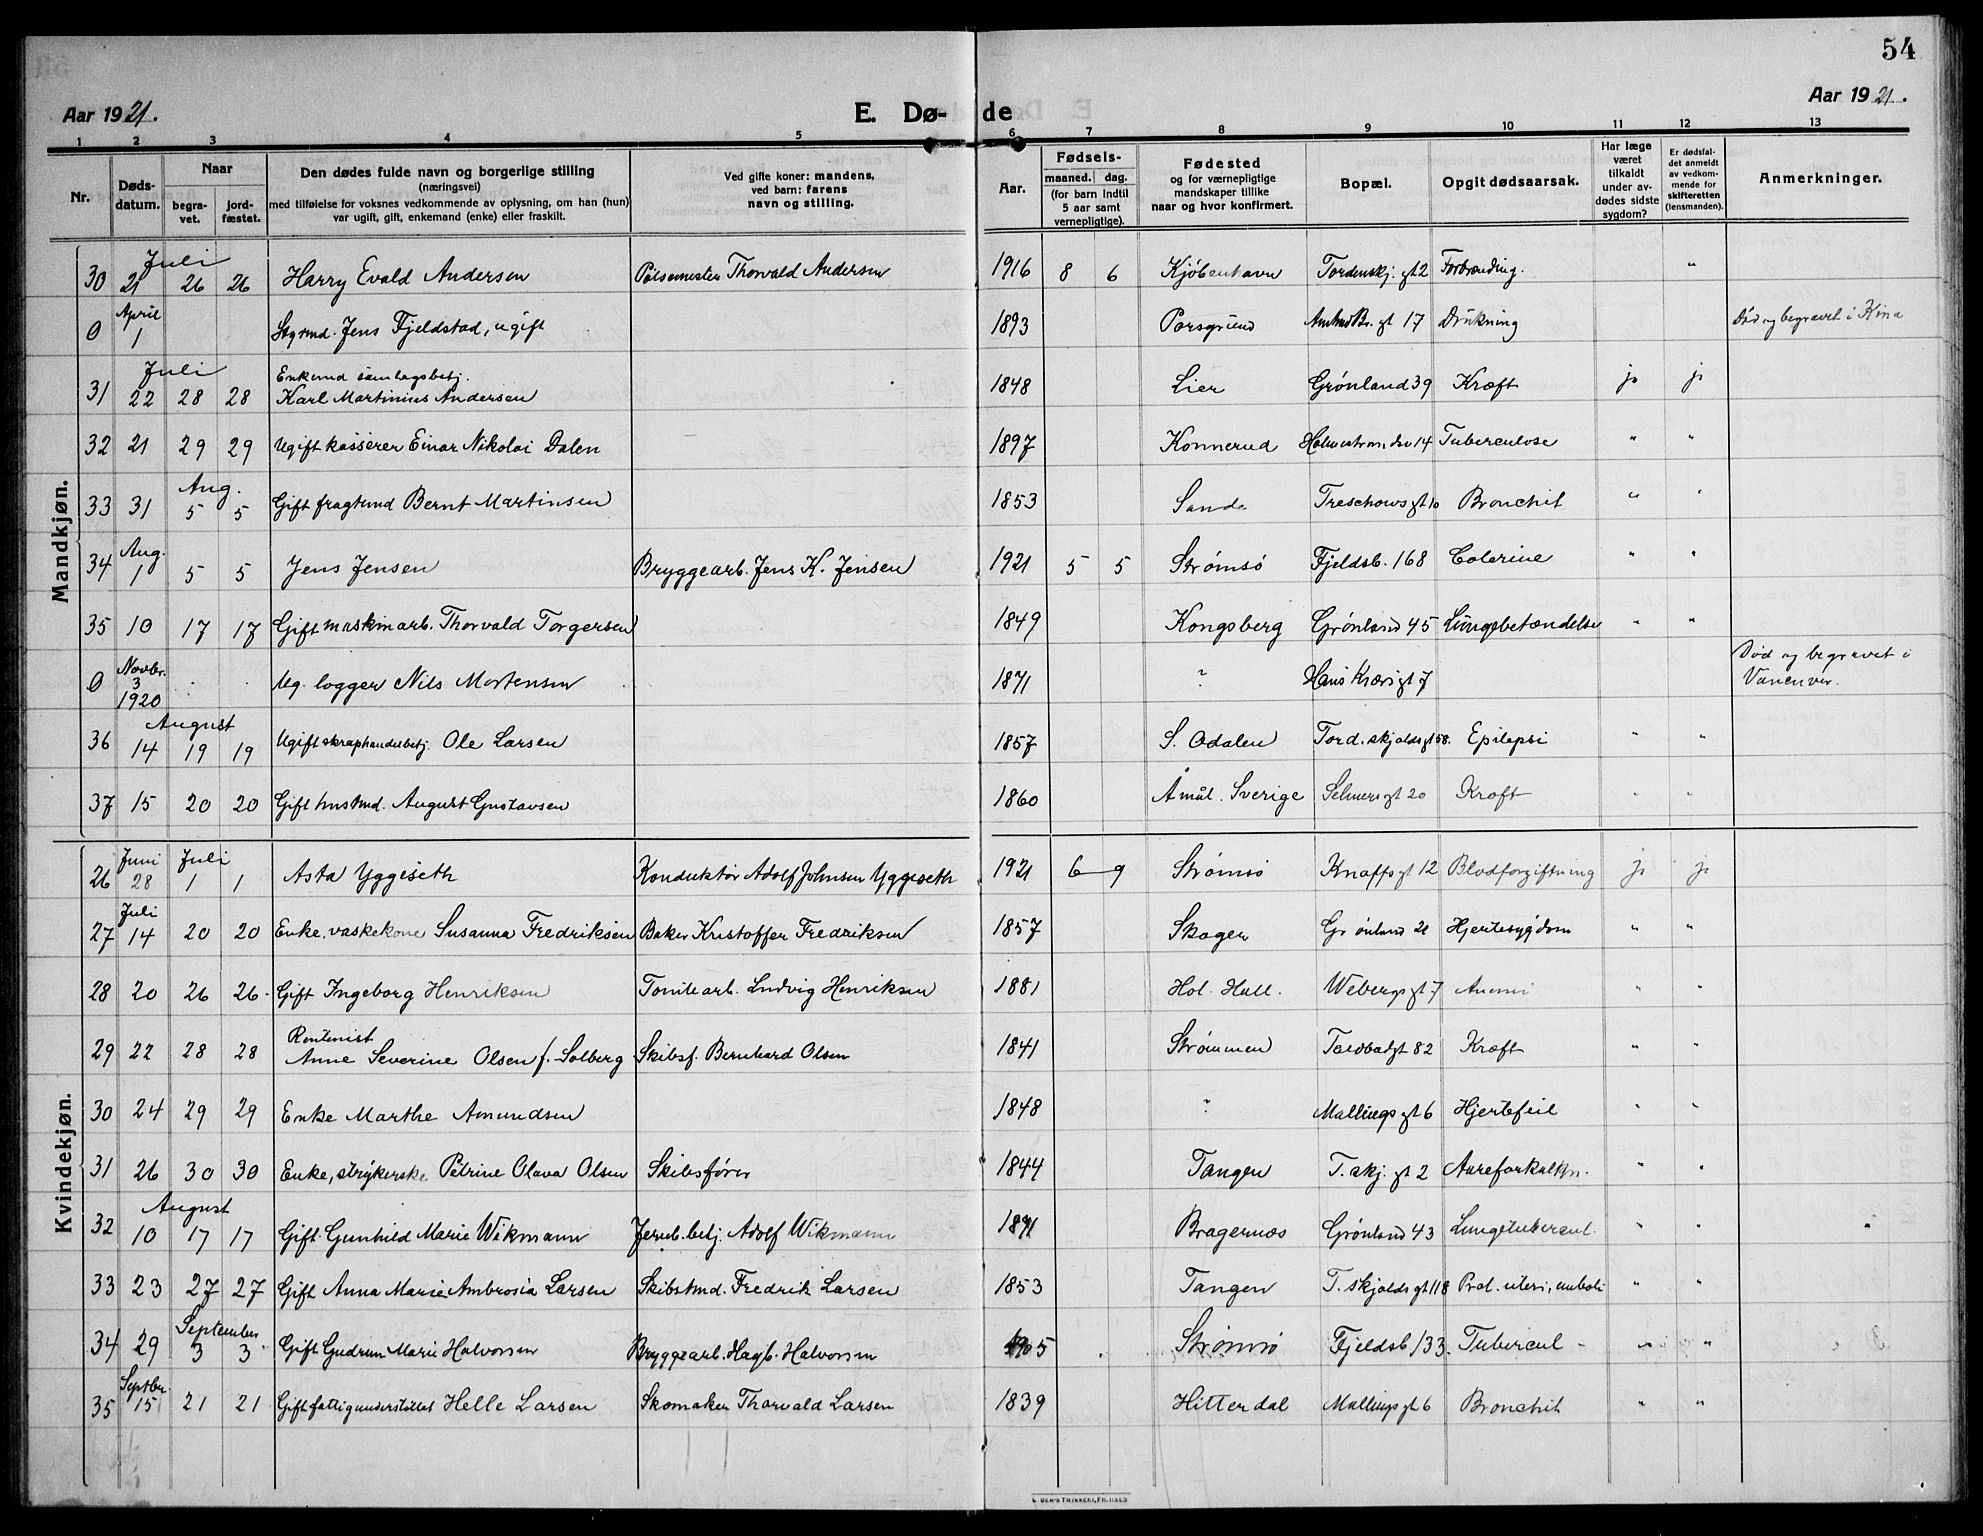 54
Aar 1921.
E. Dø- de
Aar 1921.
1 2 3 4 5 6 7 8 9 10 11 12 13
Nr.
Døds-
datum.
Naar
begra-
vet.
jord-
fæstet.
Den dødes fulde navn og borgerlige stilling
(næringsvei)
med tilføielse for voksnes vedkommende av oplysning, om han (hun)
var ugift, gift, enkemand (enke) eller fraskilt.
Ved gifte koner: mandens,
ved barn: farens
navn og stilling.
Aar.
Fødsels-
maaned. dag.
(for barn indtil
5 aar samt
vernepligtige).
Fødested
og for værnepligtige
mandskaper tillike
naar og hvor konfirmert.
Bopæl.
Opgit dødsaarsak.
Har læge
været
tilkaldt
under av-
dødes sidste
sygdom?
Er dødsfal-
det anmeldt
av vedkom-
mende for
skifteretten
(lensmanden).
Anmerkninger.
Mandkjøn.
Juli
30 21 26 26 Harry Evald Andersen Pølsemester Thorvald Andersen 1916 8 6 Kjøbenhavn Tordenskj. gt 2 Forbrænding. "
April
0 1 Styrmd. Jens Fjeldstad, ugift 1893 Porsgrund gt 17 Drukning Død og begravet i Kina
Juli Enkemd samlagsbetj.
31 22 28 28 Karl Martinius Andersen 1848 Lier Grønland 39 Kræft ja ja
32 21 29 29 Ugift kasserer Einar Nikolai Dalen 1897 Konnerud Holmestrandsv 14 Tuberculose " "
Aug.
33 31 5 5 Gift fragtmd Bernt Martinsen 1853 Sande Treschowsgt 10 Bronchit " "
Aug.
34 1 5 5 Jens Jensen Bryggearb. Jens K. Jensen 1921 5 5 Strømsø Fjeldsb. 168 Colerine " "
35 10 17 17 Gift maskinarb. Thorvald Torgersen 1849 Kongsberg Grønland 45 Lungebetændelse " "
Novbr.
0 3 Ug. logger Nils Mortensen 1871 ? Hans Kiærs gt 7 Død og begravet i
1920 Vancuver.
August
36 14 19 19 Ugift skraphandelbetj. Ole Larsen 1857 S. Odalen Tord.skjoldsgt 58. Epilepsi " "
37 15 20 20 Gift August Gustavsen 1860 Åmål. Sverige Selmersgt 20 Kræft " "
Kvindekjøn.
Juni Juli
26 28 1 1 Asta Yggeseth Konduktør Adolf Johnsen Yggeseth 1921 6 9 Strømsø Knoffsgt 12 Blodforgiftning ja ja
Juli
27 14 20 20 Enke, vaskekone Susanna Fredriksen Baker Kristoffer Fredriksen 1857 Skoger Grønland 21 Hjertesygdom " "
28 20 26 26 Gift Ingeborg Henriksen Tomtearb. Ludvig Henriksen 1881 Hol. Hall. Webergsgt 7 Anemi " "
Rentenist
29 22 28 28 Anne Severine Olsen f. Solberg Skibsf. Bernhard Olsen 1841 Strømmen Toldbodgt 82 Kræft " "
30 24 29 29 Enke Marthe Amundsen 1848 ? Mallings gt 6 Hjertefeil " "
31 26 30 30 Enke, strykerske Petrine Olava Olsen Skibsfører 1844 Tangen T. skj. gt 2 Aareforkalkn. " "
August
32 10 17 17 Gift Gunhild Marie Wikmann Jernb.betj. Adolf Wikmann 1871 Bragernæs Grønland 43 Lungetubercul. " "
33 23 27 27 Gift Anna Marie Ambrosia Larsen Skibstmd. Fredrik Larsen 1853 Tangen T. skjoldsgt 118 Prol. uteri, emboli " "
September
34 29 3 3 Gift Gudrun Marie Halvorsen Bryggearb. Hagb. Halvorsen 1905 Strømsø Fjeldsb 133. Tubercul " "
Septbr.
35 15 21 21 Gift fattigunderstøttet Helle Larsen Skomaker Thorvald Larsen 1839 Hitterdal Mallings gt 6 Bronchit " "